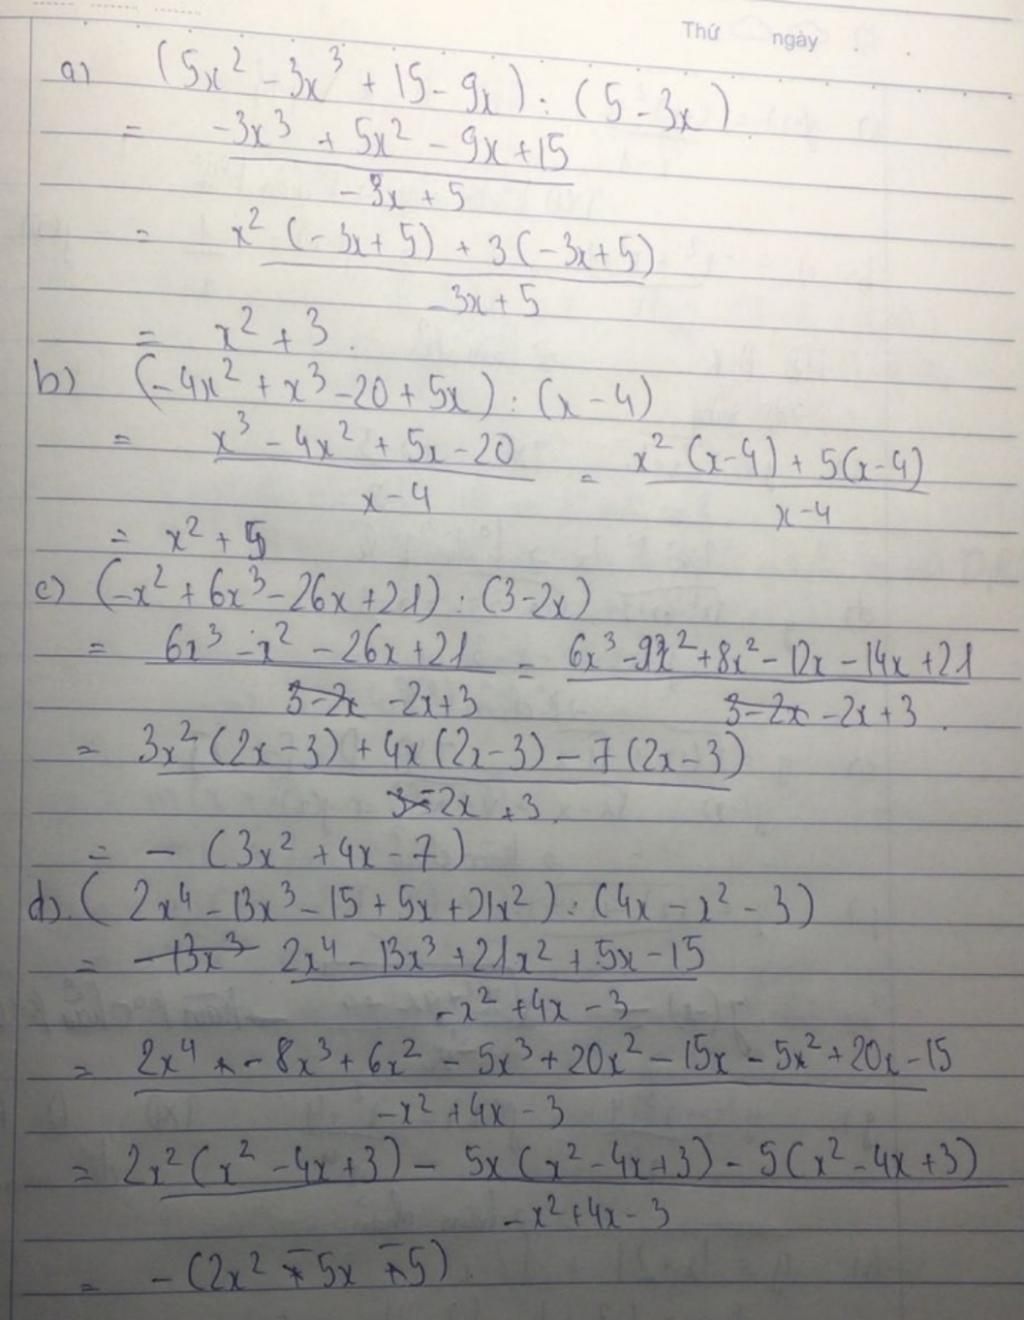 Thứ ngày
a) (5x² - 3x³ + 15 - 9x) : (5 - 3x)
= -3x³ + 5x² - 9x + 15
-3x + 5
= x² (-3x + 5) + 3(-3x + 5)
-3x + 5
= x² + 3.
b) (-4x² + x³ - 20 + 5x) : (x - 4)
= x³ - 4x² + 5x - 20 = x² (x - 4) + 5(x - 4)
x - 4 x - 4
= x² + 5
c) (-x² + 6x³ - 26x + 21) : (3 - 2x)
= 6x³ - x² - 26x + 21 = 6x³ - 9x² + 8x² - 12x - 14x + 21
3 - 2x -2x + 3 3 - 2x -2x + 3.
= 3x² (2x - 3) + 4x (2x - 3) - 7 (2x - 3)
-2x + 3
= - (3x² + 4x - 7)
d). (2x⁴ - 13x³ - 15 + 5x + 21x²) : (4x - x² - 3)
= -13x³ 2x⁴ - 13x³ + 21x² + 5x - 15
-x² + 4x - 3
= 2x⁴ - 8x³ + 6x² - 5x³ + 20x² - 15x - 5x² + 20x - 15
-x² + 4x - 3
= 2x² (x² - 4x + 3) - 5x (x² - 4x + 3) - 5(x² - 4x + 3)
-x² + 4x - 3
= - (2x² - 5x - 5)